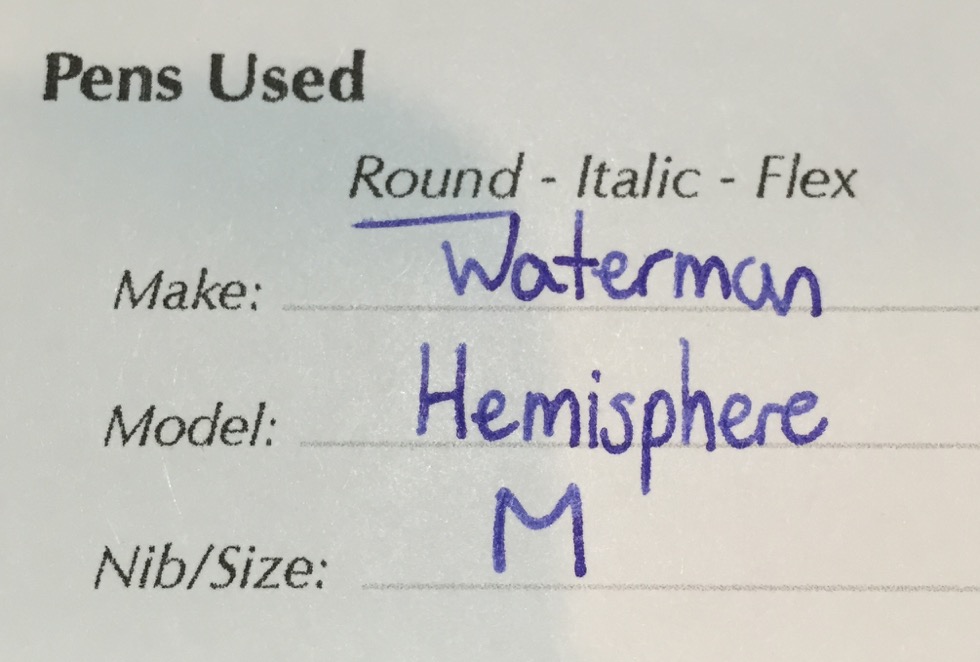 Pens Used
Round - Italic - Flex
Make: Waterman
Model: Hemisphere
Nib/Size: M